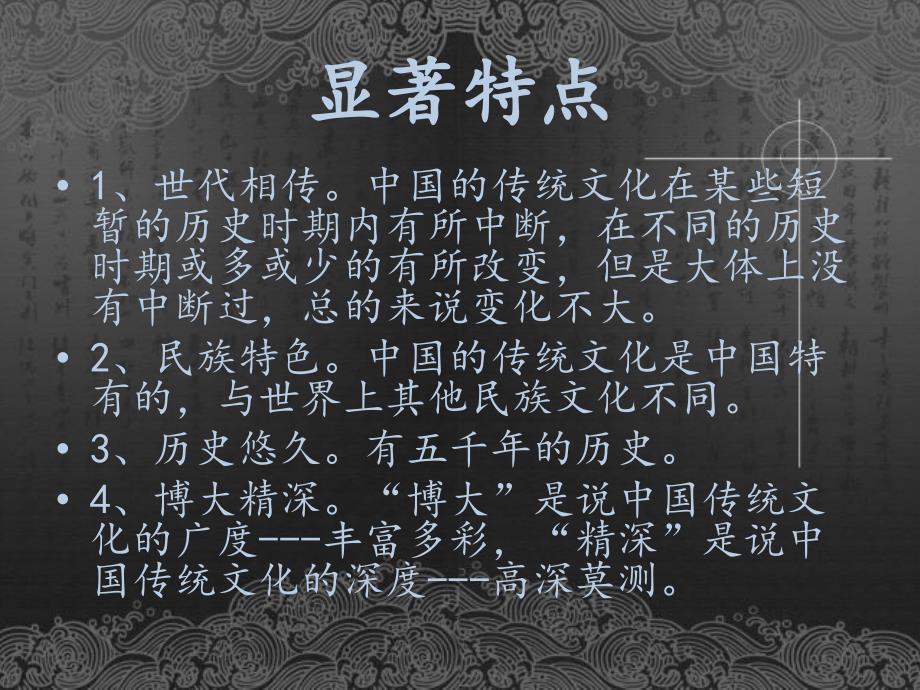 显著特点
• 1、世代相传。中国的传统文化在某些短
暂的历史时期内有所中断，在不同的历史
时期或多或少的有所改变，但是大体上没
有中断过，总的来说变化不大。
• 2、民族特色。中国的传统文化是中国特
有的，与世界上其他民族文化不同。
• 3、历史悠久。有五千年的历史。
• 4、博大精深。“博大”是说中国传统文
化的广度---丰富多彩，“精深”是说中
国传统文化的深度---高深莫测。